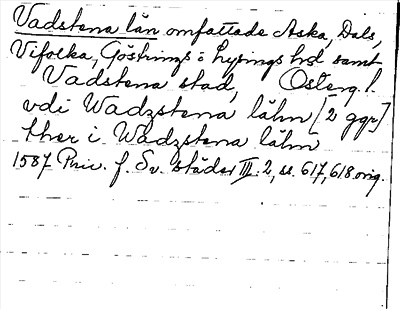 Vadstena län omfattade Aska, Dals,
Vifolka, Göstrings o Lysings hd samt
Vadstena stad, Österg. l.
vdi Wadzstena lähn [2 ggr]
ther i Wadzstena lähn
1587 Priv. f. Sv. städer III:2, ss. 617, 618 orig.